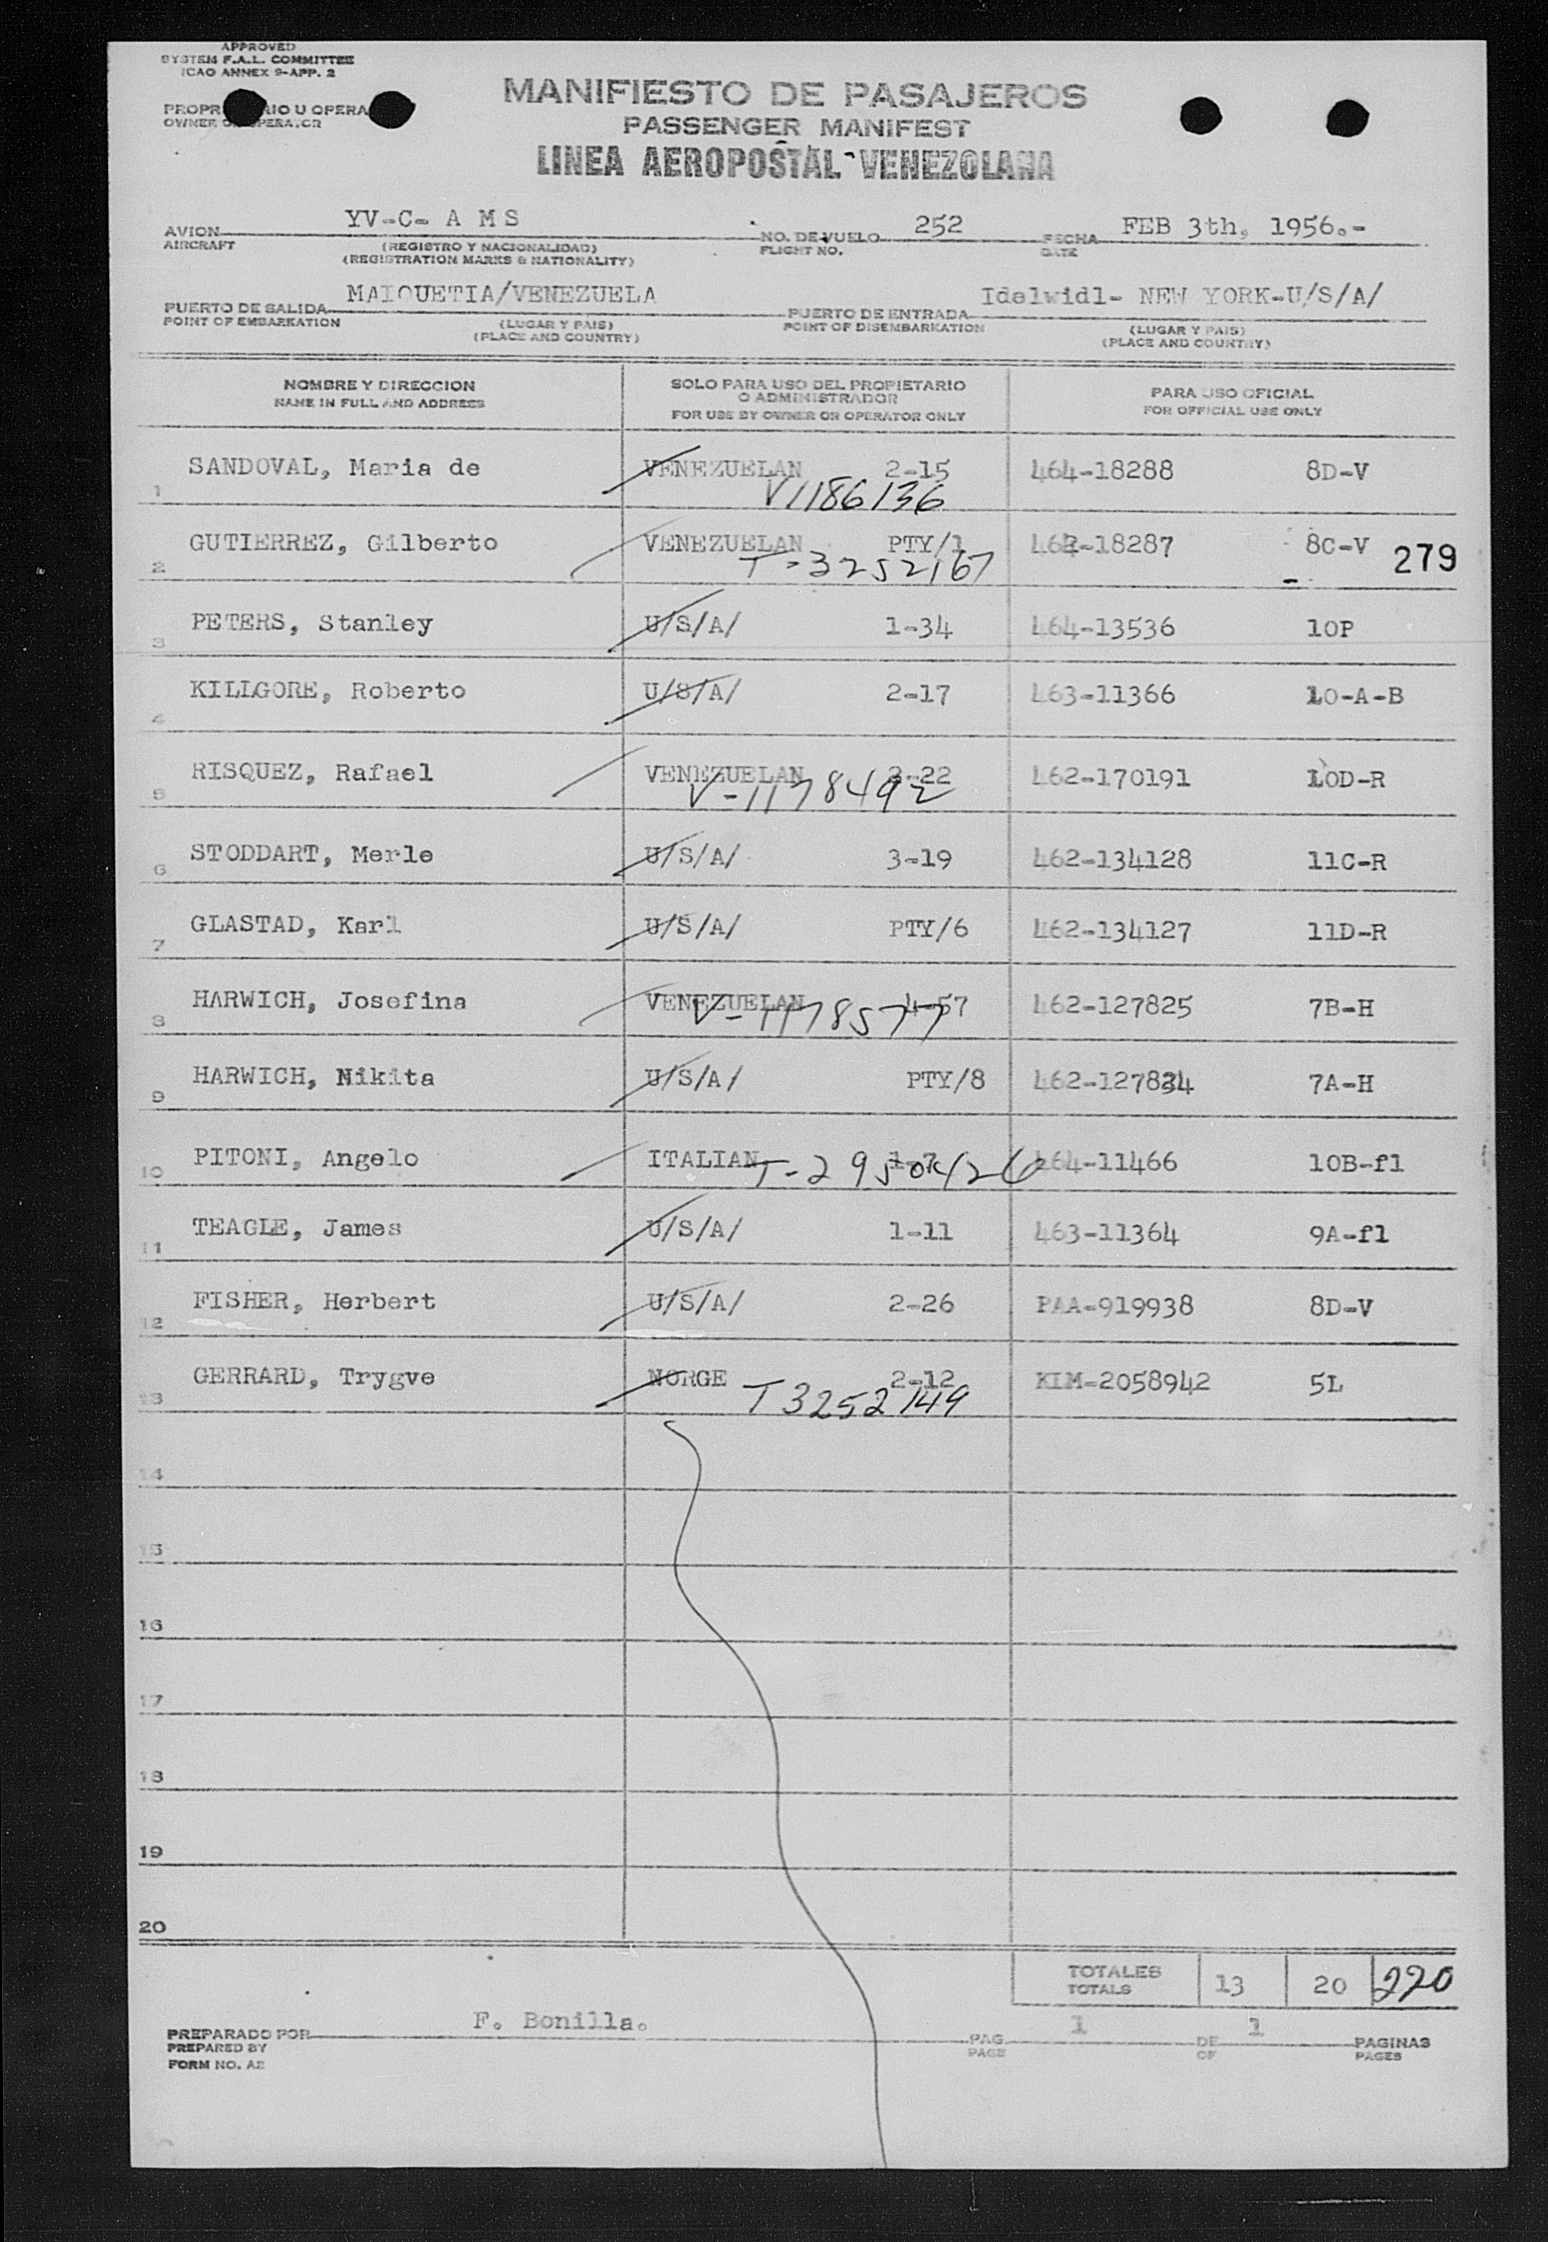 APPROVED
SYSTEM F.A.L. COMMITTEE
ICAO ANNEX 9-APP. 2
MANIFIESTO DE PASAJEROS
PASSENGER MANIFEST
LINEA AEROPOSTAL VENEZOLANA
AVION YV-C- A M S NO. DE VUELO 252 FECHA FEB 3th, 1956.-
AIRCRAFT (REGISTRO Y NACIONALIDAD) FLIGHT NO. DATE
(REGISTRATION MARKS & NATIONALITY)
PUERTO DE SALIDA MAIQUETIA/VENEZUELA PUERTO DE ENTRADA Idelwidl- NEW YORK-U/S/A/
POINT OF EMBARKATION (LUGAR Y PAIS) POINT OF DISEMBARKATION (LUGAR Y PAIS)
(PLACE AND COUNTRY) (PLACE AND COUNTRY)
NOMBRE Y DIRECCION SOLO PARA USO DEL PROPIETARIO O ADMINISTRADOR PARA USO OFICIAL
NAME IN FULL AND ADDRESS FOR USE BY OWNER OR OPERATOR ONLY FOR OFFICIAL USE ONLY
1 SANDOVAL, Maria de VENEZUELAN 2-15 464-18288 8D-V
V1186136
2 GUTIERREZ, Gilberto VENEZUELAN PTY/1 18287 8C-V 279
T-3252167
3 PETERS, Stanley U/S/A/ 1-34 464-13536 10P
4 KILLGORE, Roberto U/S/A/ 2-17 463-11366 10-A-B
5 RISQUEZ, Rafael VENEZUELAN 462-170191 10D-R
V-1178492
6 STODDART, Merle U/S/A/ 3-19 462-134128 11C-R
7 GLASTAD, Karl U/S/A/ PTY/6 462-134127 11D-R
8 HARWICH, Josefina VENEZUELAN 4-57 462-127825 7B-H
V-1178577
9 HARWICH, Nikita U/S/A/ PTY/8 7A-H
10 PITONI, Angelo ITALIAN 1-7 464-11466 10B-fl
T-2950426
11 TEAGLE, James U/S/A/ 1-11 463-11364 9A-fl
12 FISHER, Herbert U/S/A/ 2-26 PAA-919938 8D-V
13 GERRARD, Trygve NORGE 2-12 KLM-2058942 5L
T3252149
14
15
16
17
18
19
20
TOTALES 13 20 220
TOTALS
PREPARADO POR F. Bonilla. PAG 1 DE 1 PAGINAS
PREPARED BY PAGE OF PAGES
FORM NO. A2